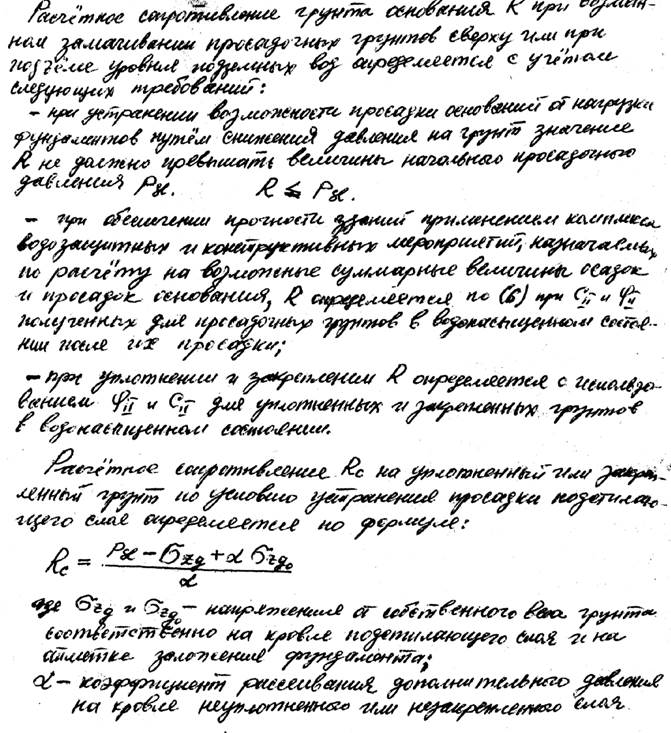 Расчётное сопротивление грунта основания R при возмож-
ном замачивании просадочных грунтов сверху или при
подъёме уровня подземных вод определяется с учётом
следующих требований:
– при устранении возможности просадки оснований от нагрузки
фундаментов путём снижения давления на грунт значение
R не должно превышать величины начального просадочного
давления Psl. R ≤ Psl.
– при обеспечении прочности зданий применением комплекса
водозащитных и конструктивных мероприятий, назначаемых
по расчёту на возможные суммарные величины осадок
и просадок основания, R определяется по (6) при C_II и φ_II
полученных для просадочных грунтов в водонасыщенном состоя-
нии после их просадки;
– при уплотнении и закреплении R определяется с использо-
ванием φ_II и C_II для уплотненных и закрепленных грунтов
в водонасыщенном состоянии.
Расчётное сопротивление Rc на уплотненный или закреп-
ленный грунт по условию устранения просадки подстилаю-
щего слоя определяется по формуле:
Rc = (Psl – σzg + α σzg0) / α
где σzg и σzg0 – напряжения от собственного веса грунта
соответственно на кровле подстилающего слоя и на
отметке заложения фундамента;
α – коэффициент рассеивания дополнительного давления
на кровле неуплотненного или незакрепленного слоя.